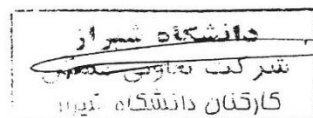 دانشگاه شیراز
شرکت تعاونی
کارکنان دانشگاه شیراز